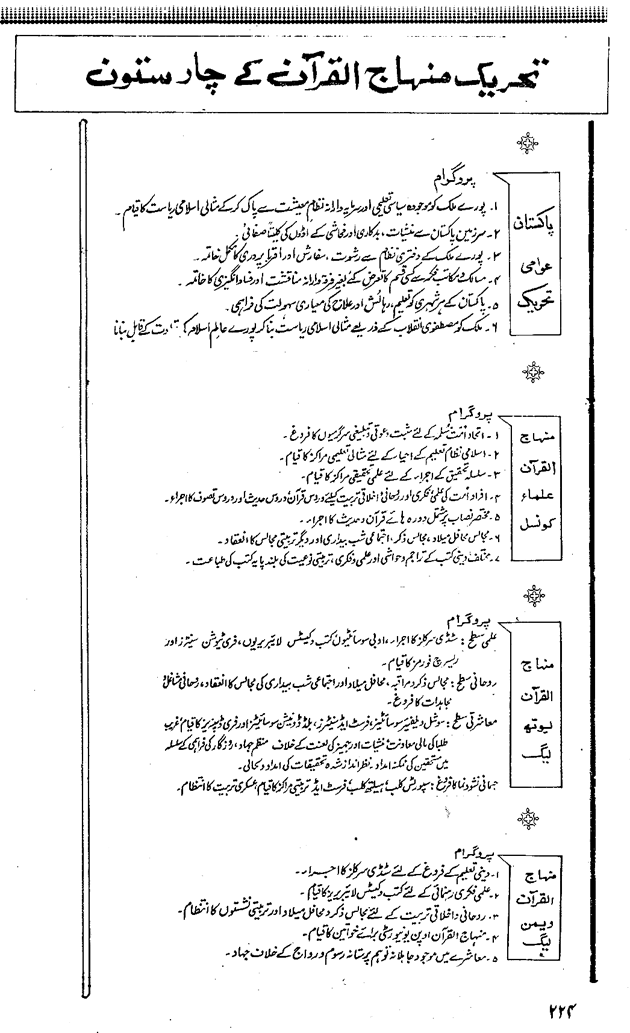 تحریک منہاج القرآن کے چار ستون
پاکستان
عوامی
تحریک
پروگرام
۱۔ پورے ملک کو موجودہ سیاسی تعلیمی اور سرمایہ دارانہ نظام معیشت سے پاک کر کے مثالی اسلامی ریاست کا قیام۔
۲۔ سرزمین پاکستان سے منشیات، بدکاری اور فحاشی کے اڈوں کی کلیتاً صفائی
۳۔ پورے ملک کے دفتری نظام سے رشوت، سفارش اور اقربا پروری کا مکمل خاتمہ۔
۴۔ مسالک و مکاتب فکر سے کسی قسم کا تعرض کئے بغیر فرقہ وارانہ مناقشت اور فساد انگیزی کا خاتمہ۔
۵۔ پاکستان کے ہر شہری کو تعلیم، رہائش اور علاج کی معیاری سہولت کی فراہمی۔
۶۔ ملک کو مصطفوی انقلاب کے ذریعے مثالی اسلامی ریاست بنا کر پورے عالم اسلام کی کے قابل بنانا
منہاج
القرآن
علماء
کونسل
پروگرام
۱۔ اتحاد امت مسلمہ کے لئے مثبت دعوتی و تبلیغی سرگرمیوں کا فروغ۔
۲۔ اسلامی نظام تعلیم کے احیا کے لئے مثالی تعلیمی مراکز کا قیام۔
۳۔ سلسلہ تحقیق کے اجراء کے لئے علمی و تحقیقی مراکز کا قیام۔
۴۔ افراد امت کی علمی و فکری اور روحانی و اخلاقی تربیت کیلئے دروس قرآن و دروس حدیث اور دروس تصوف کا اجراء۔
۵۔ مختصر نصاب پر مشتمل دورہ ہائے قرآن و حدیث کا اجراء۔
۶۔ مجالس محافل میلاد، مجالس ذکر، اجتماعی شب بیداری اور دیگر تربیتی مجالس کا انعقاد۔
۷۔ مختلف دینی کتب کے تراجم و حواشی اور علمی و فکری، تربیتی نوعیت کی بلند پایہ کتب کی طباعت۔
منہاج
القرآن
یوتھ
لیگ
پروگرام
علمی سطح: سٹڈی سرکلز کا اجراء، ادبی سوسائٹیوں کتب و کیسٹس لائبریریوں، فری ٹیوشن سینٹرز اور
ریسرچ فورمز کا قیام۔
روحانی سطح: مجالس ذکر و مراقبہ، محافل میلاد اور اجتماعی شب بیداری کی مجالس کا انعقاد، روحانی مشاغل
مجاہدات کا فروغ۔
معاشرتی سطح: سوشل ویلفیئر سوسائٹیز، فرسٹ ایڈ سنٹرز، بلڈ ڈونیشن سوسائٹیز اور فری ڈسپنسریز کا قیام غریب
طلبا کی مالی معاونت، منشیات اور جہیز کی لعنت کے خلاف منظم جہاد، روزگار کی فراہمی کے سلسلہ
میں مستحقین کی ممکنہ امداد۔ نظر انداز شدہ کی امداد و بحالی۔
جسمانی نشوونما کا فروغ: سپورٹس کلب، ہیلتھ کلب، فرسٹ ایڈ تربیتی مراکز کا قیام، عسکری تربیت کا انتظام۔
منہاج
القرآن
ویمن
لیگ
پروگرام
۱۔ دینی تعلیم کے فروغ کے لئے سٹڈی سرکلز کا اجراء۔
۲۔ علمی فکری رہنمائی کے لئے کتب و کیسٹس لائبریریز کا قیام۔
۳۔ روحانی و اخلاقی تربیت کے لئے مجالس ذکر و محافل میلاد اور تربیتی نشستوں کا انتظام۔
۴۔ منہاج القرآن اوپن یونیورسٹی برائے خواتین کا قیام۔
۵۔ معاشرے میں موجود جاہلانہ توہم پرستانہ رسوم و رواج کے خلاف جہاد۔
۲۲۴